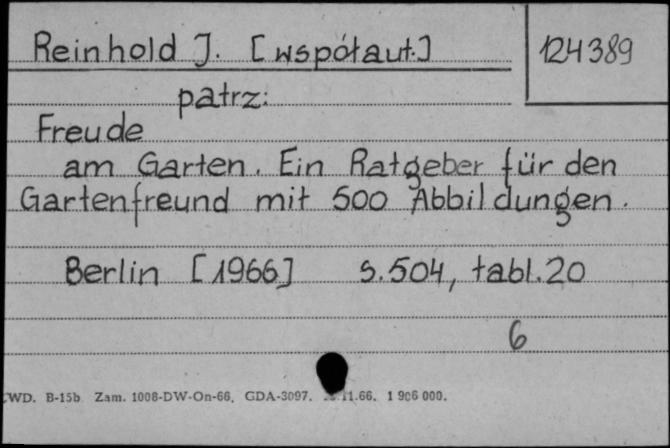 Reinhold J. [współaut.]
124389
patrz:
Freude
am Garten. Ein Ratgeber für den
Gartenfreund mit 500 Abbildungen.
Berlin [1966] s. 504, tabl. 20
6
WD. B-15b Zam. 1008-DW-On-66. GDA-3097. 11.66. 1 906 000.